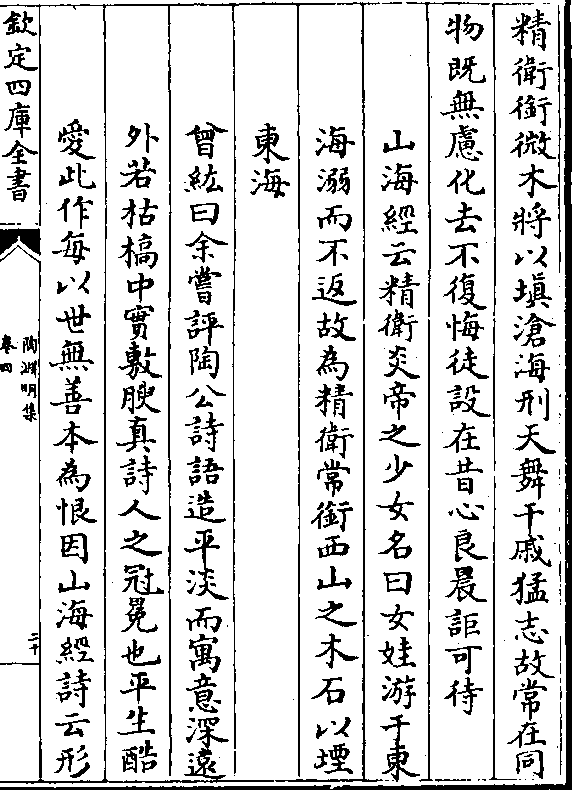 精衛銜微木將以塡滄海刑天舞干戚猛志故常在同
物既無慮化去不復悔徒設在昔心良晨詎可待
山海經云精衛炎帝之少女名曰女娃游于東
海溺而不返故為精衛常銜西山之木石以堙
東海
曾紘曰余嘗評陶公詩語造平淡而寓意深遠
外若枯槁中實敷腴真詩人之冠冕也平生酷
愛此作每以世無善本為恨因山海經詩云形
欽定四庫全書
陶淵明集
卷四
二十